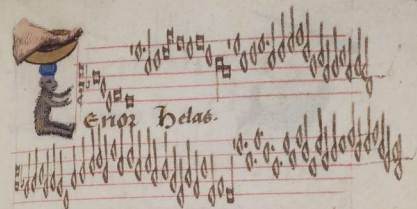 Tenor Helas.